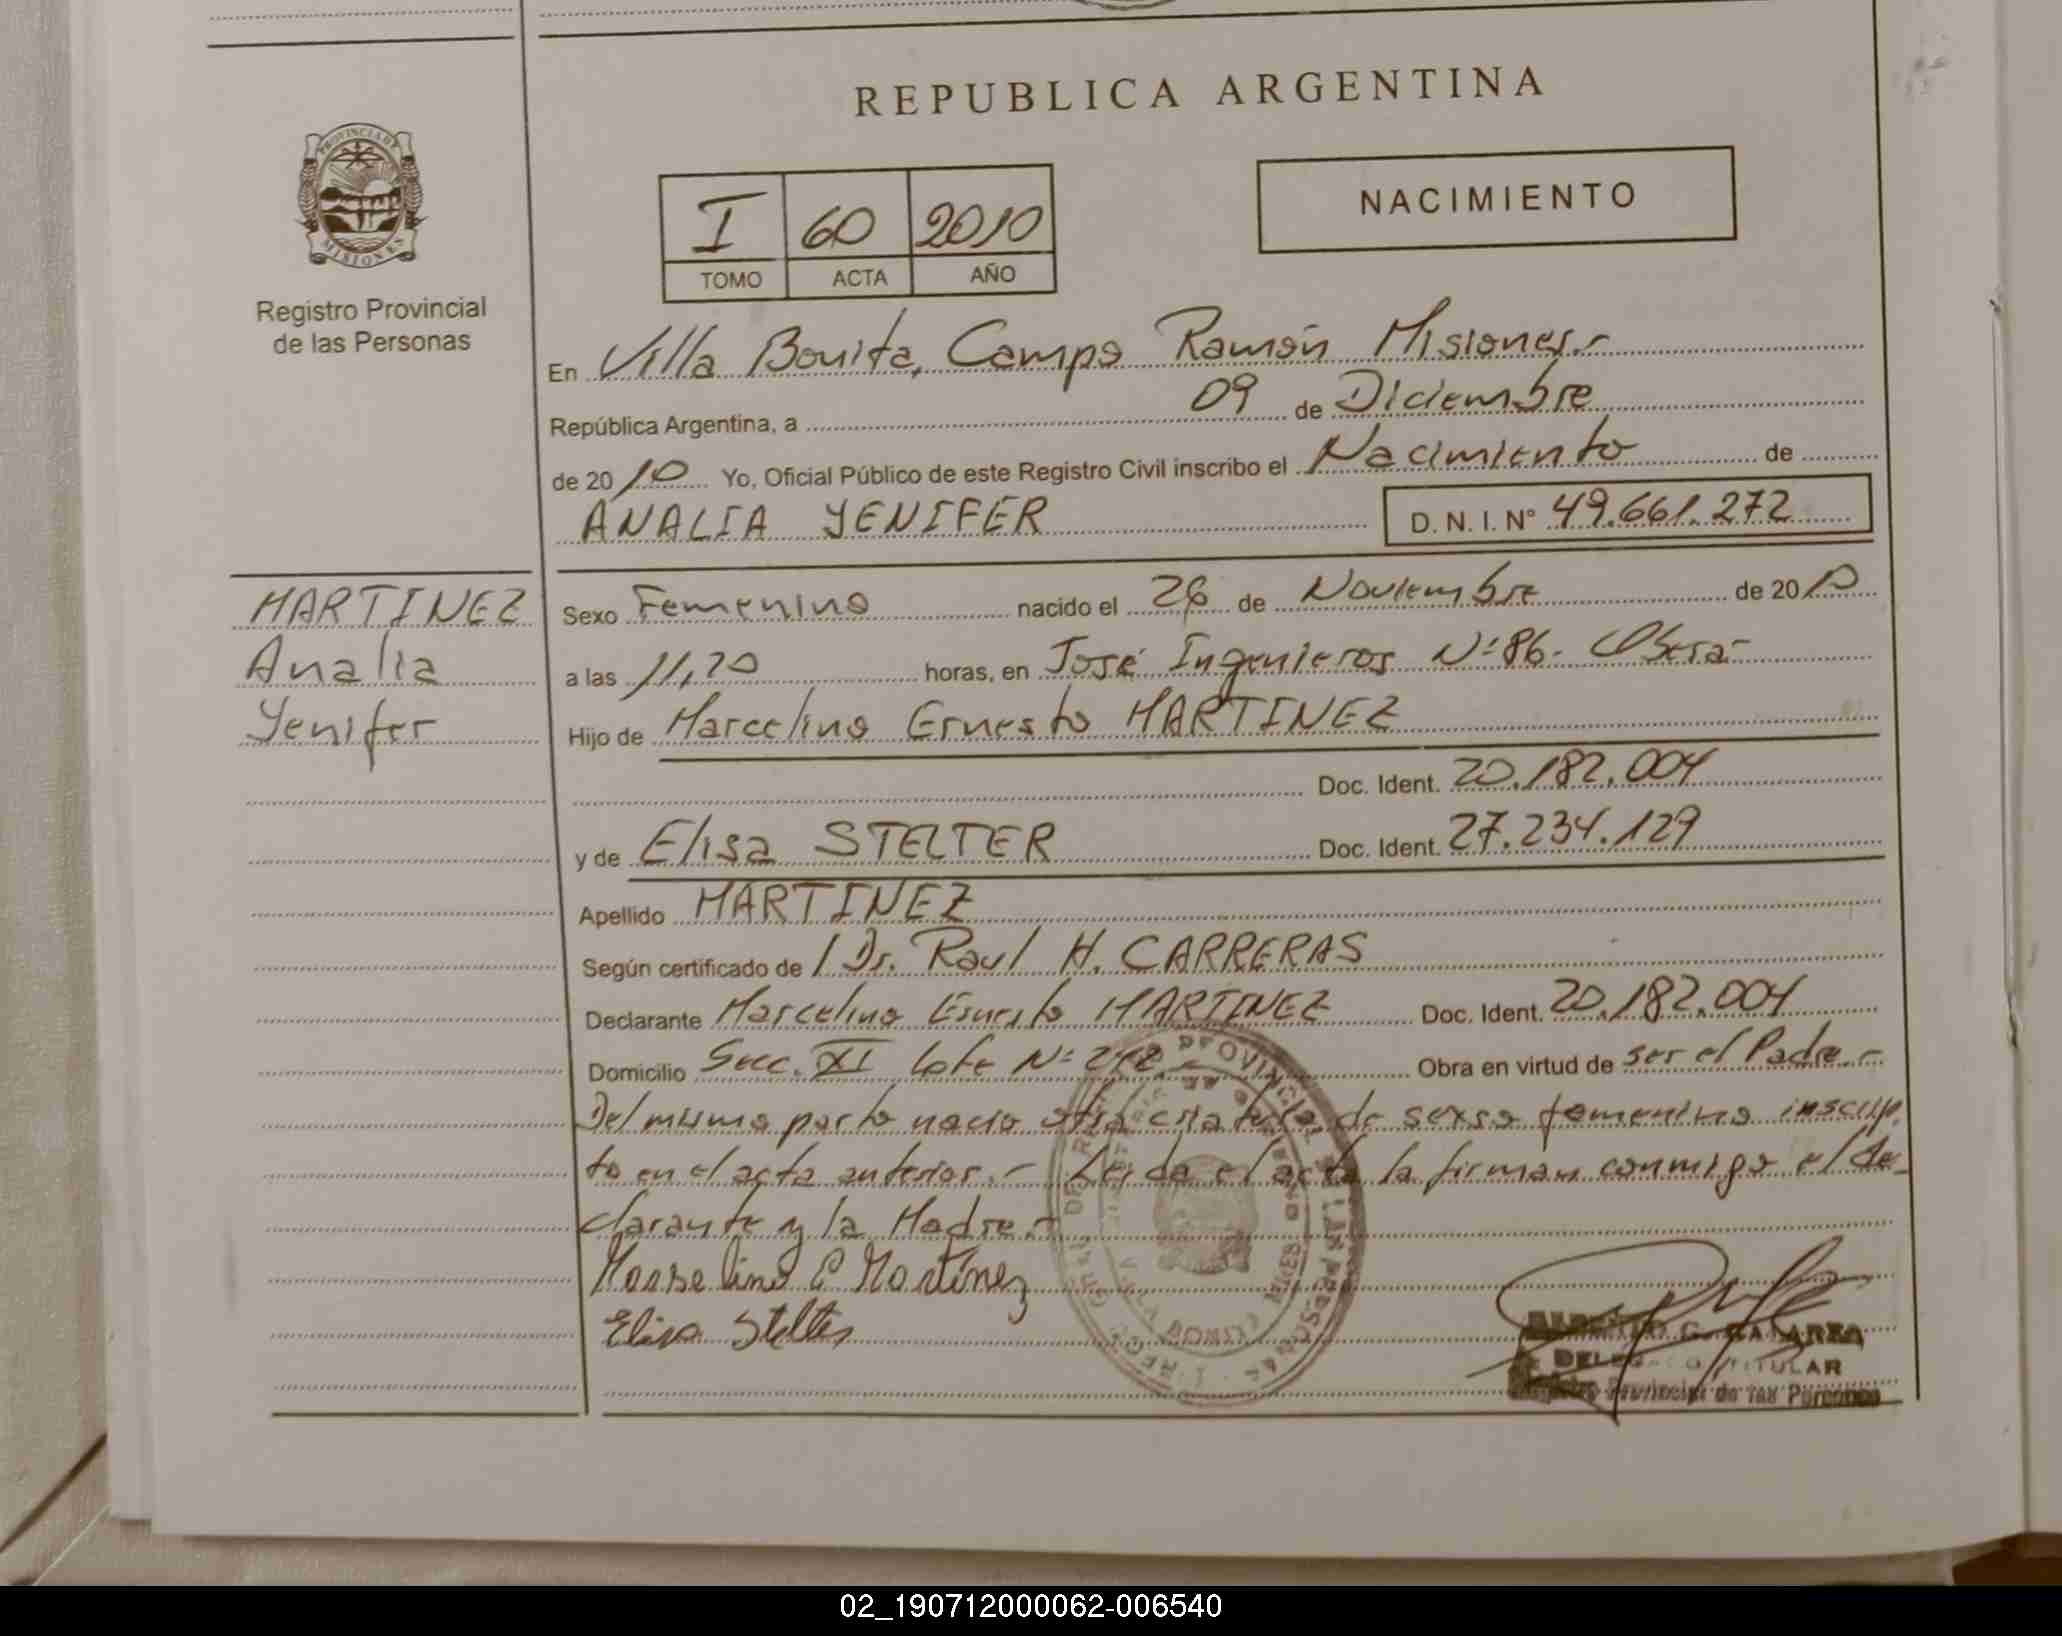 REPUBLICA ARGENTINA
PROVINCIA DE
MISIONES
Registro Provincial
de las Personas
I 60 2010
TOMO ACTA AÑO
NACIMIENTO
En Villa Bonita, Campo Ramón Misiones.-
República Argentina, a 09 de Diciembre
de 2010 Yo, Oficial Público de este Registro Civil inscribo el Nacimiento de
ANALIA YENIFER D. N. I. Nº 49.661.272
MARTINEZ
Analia
Yenifer
Sexo Femenino nacido el 26 de Noviembre de 2010
a las 11,20 horas, en José Ingenieros Nº 86- Oberá-
Hijo de Marcelino Ernesto MARTINEZ
Doc. Ident. 20.182.004
y de Elisa STELTER Doc. Ident. 27.234.129
Apellido MARTINEZ
Según certificado de / Dr. Raul H. CARRERAS
Declarante Marcelino Ernesto MARTINEZ Doc. Ident. 20.182.004
Domicilio Secc. XI Lote Nº 242.- Obra en virtud de ser el Padre.-
Del mismo parto nacio otra criatura de sexso femenino inscrip
to en el acta anterior.- Leida el acta la firman conmigo el de_
clarante y la Madre.-
Marselino E Martínez
Elisa Stelter
DELEGADO TITULAR
Registro Provincial de las Personas
02_190712000062-006540